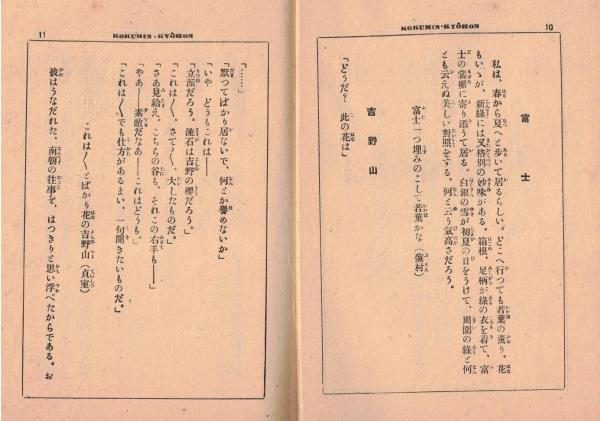 10
KOKUMIN-KYŌHON
富士
私は、春から夏へと歩いて居るらしい。どこへ行つても若葉の薫り。花
もいゝが、新綠には又格別の妙味がある。箱根、足柄が綠の衣を着て、富
士の裳裾に寄り添うて居る。白銀の雪が初夏の日をうけて、周圍の綠と何
とも云えぬ美しい對照をする。何と云う氣高さだろう。
富士一つ埋みのこして若葉かな（蕪村）
吉野山
「どうだ？此の花は」
KOKUMIN-KYŌHON
11
「……」
「默つてばかり居ないで、何とか譽めないか」
「いや どうもこれは――
「立派だろう。流石は吉野の櫻だろう。」
「これは〳〵。さて〳〵、大したものだ。」
「さあ見給え、こちらの谷も、それこの右手も――」
「やあ――素敵だなあ――これはどうも。」
「これは〳〵でも仕方があるまい。一句聞きたいものだ。」
これは〳〵とばかり花の吉野山（貞室）
彼はうなだれた、南朝の往事を、はつきりと思い浮べたからである。お